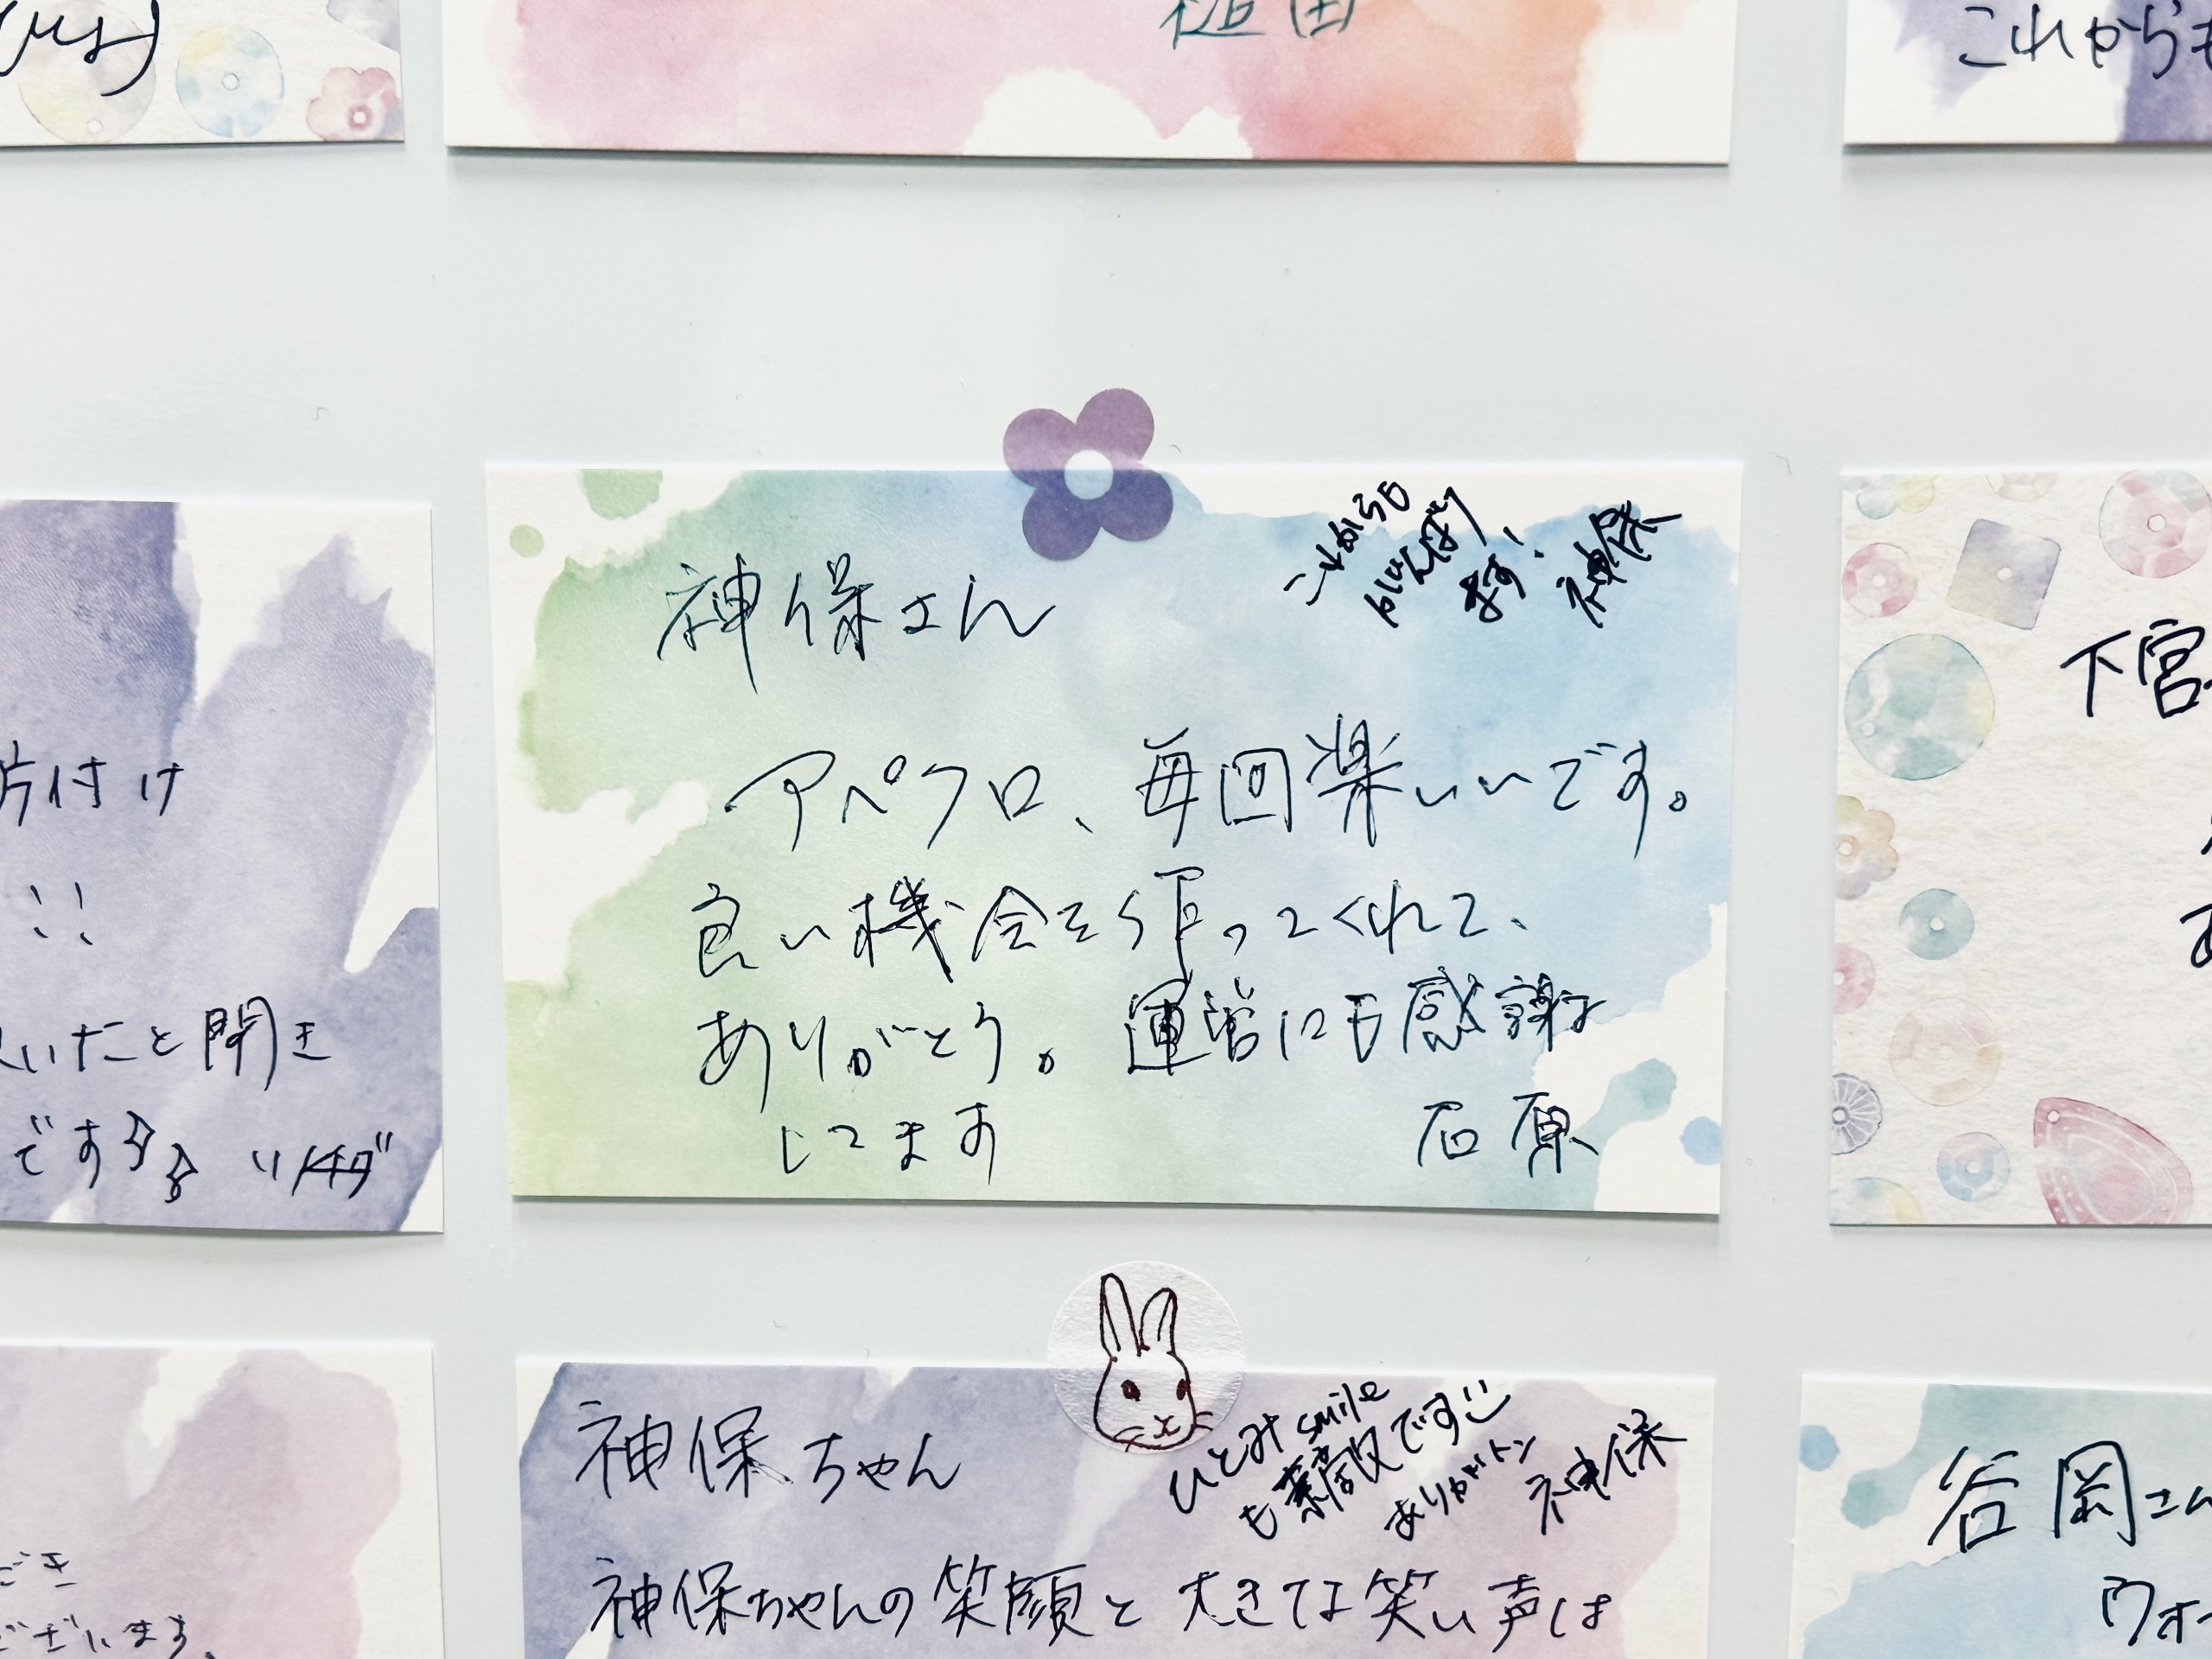 植田
これからも
神保さん
これからも
がんばり
ます!
神保
アペクロ、毎回楽しいです。
良い機会を作ってくれて、
ありがとう。運営にも感謝
してます
石原
片付け
!!
いたと聞き
です
下宮
神保ちゃん
ひとみsmile
も素敵です
ありがトン
神保
神保ちゃんの笑顔と大きな笑い声は
谷岡さん
ウォ
だき
ございます。